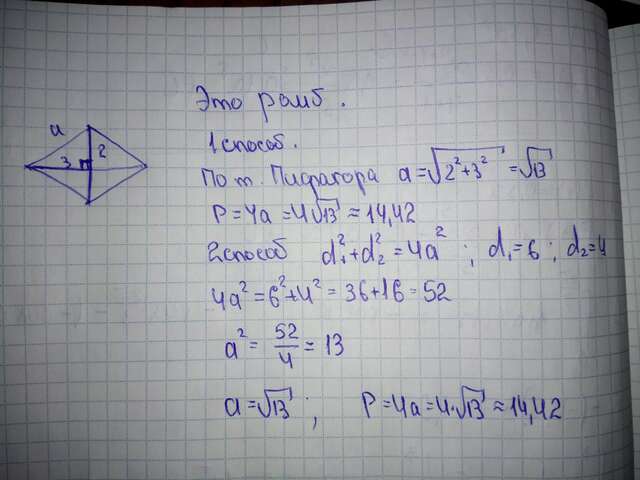 Это ромб.
1 способ.
a
3 2
По т. Пифагора a=√2²+3² =√13
P=4a=4√13≈14,42
2 способ d₁²+d₂²=4a²; d₁=6; d₂=4
4a²=6²+4²=36+16=52
a²=52/4=13
a=√13; P=4a=4·√13≈14,42